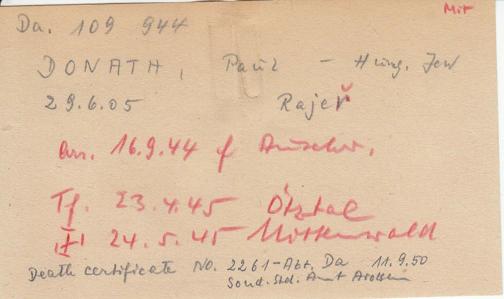 Mit
Da. 109 944
DONATH, Paul - Hung. Jew
29.6.05 Rajeř
arr. 16.9.44 f Auschw.
Tf. 23.4.45 Ötztal
24.5.45 Mittenwald
Death certificate No. 2261-Abt. Da 11.9.50
Sond. Std. Amt Arolsen